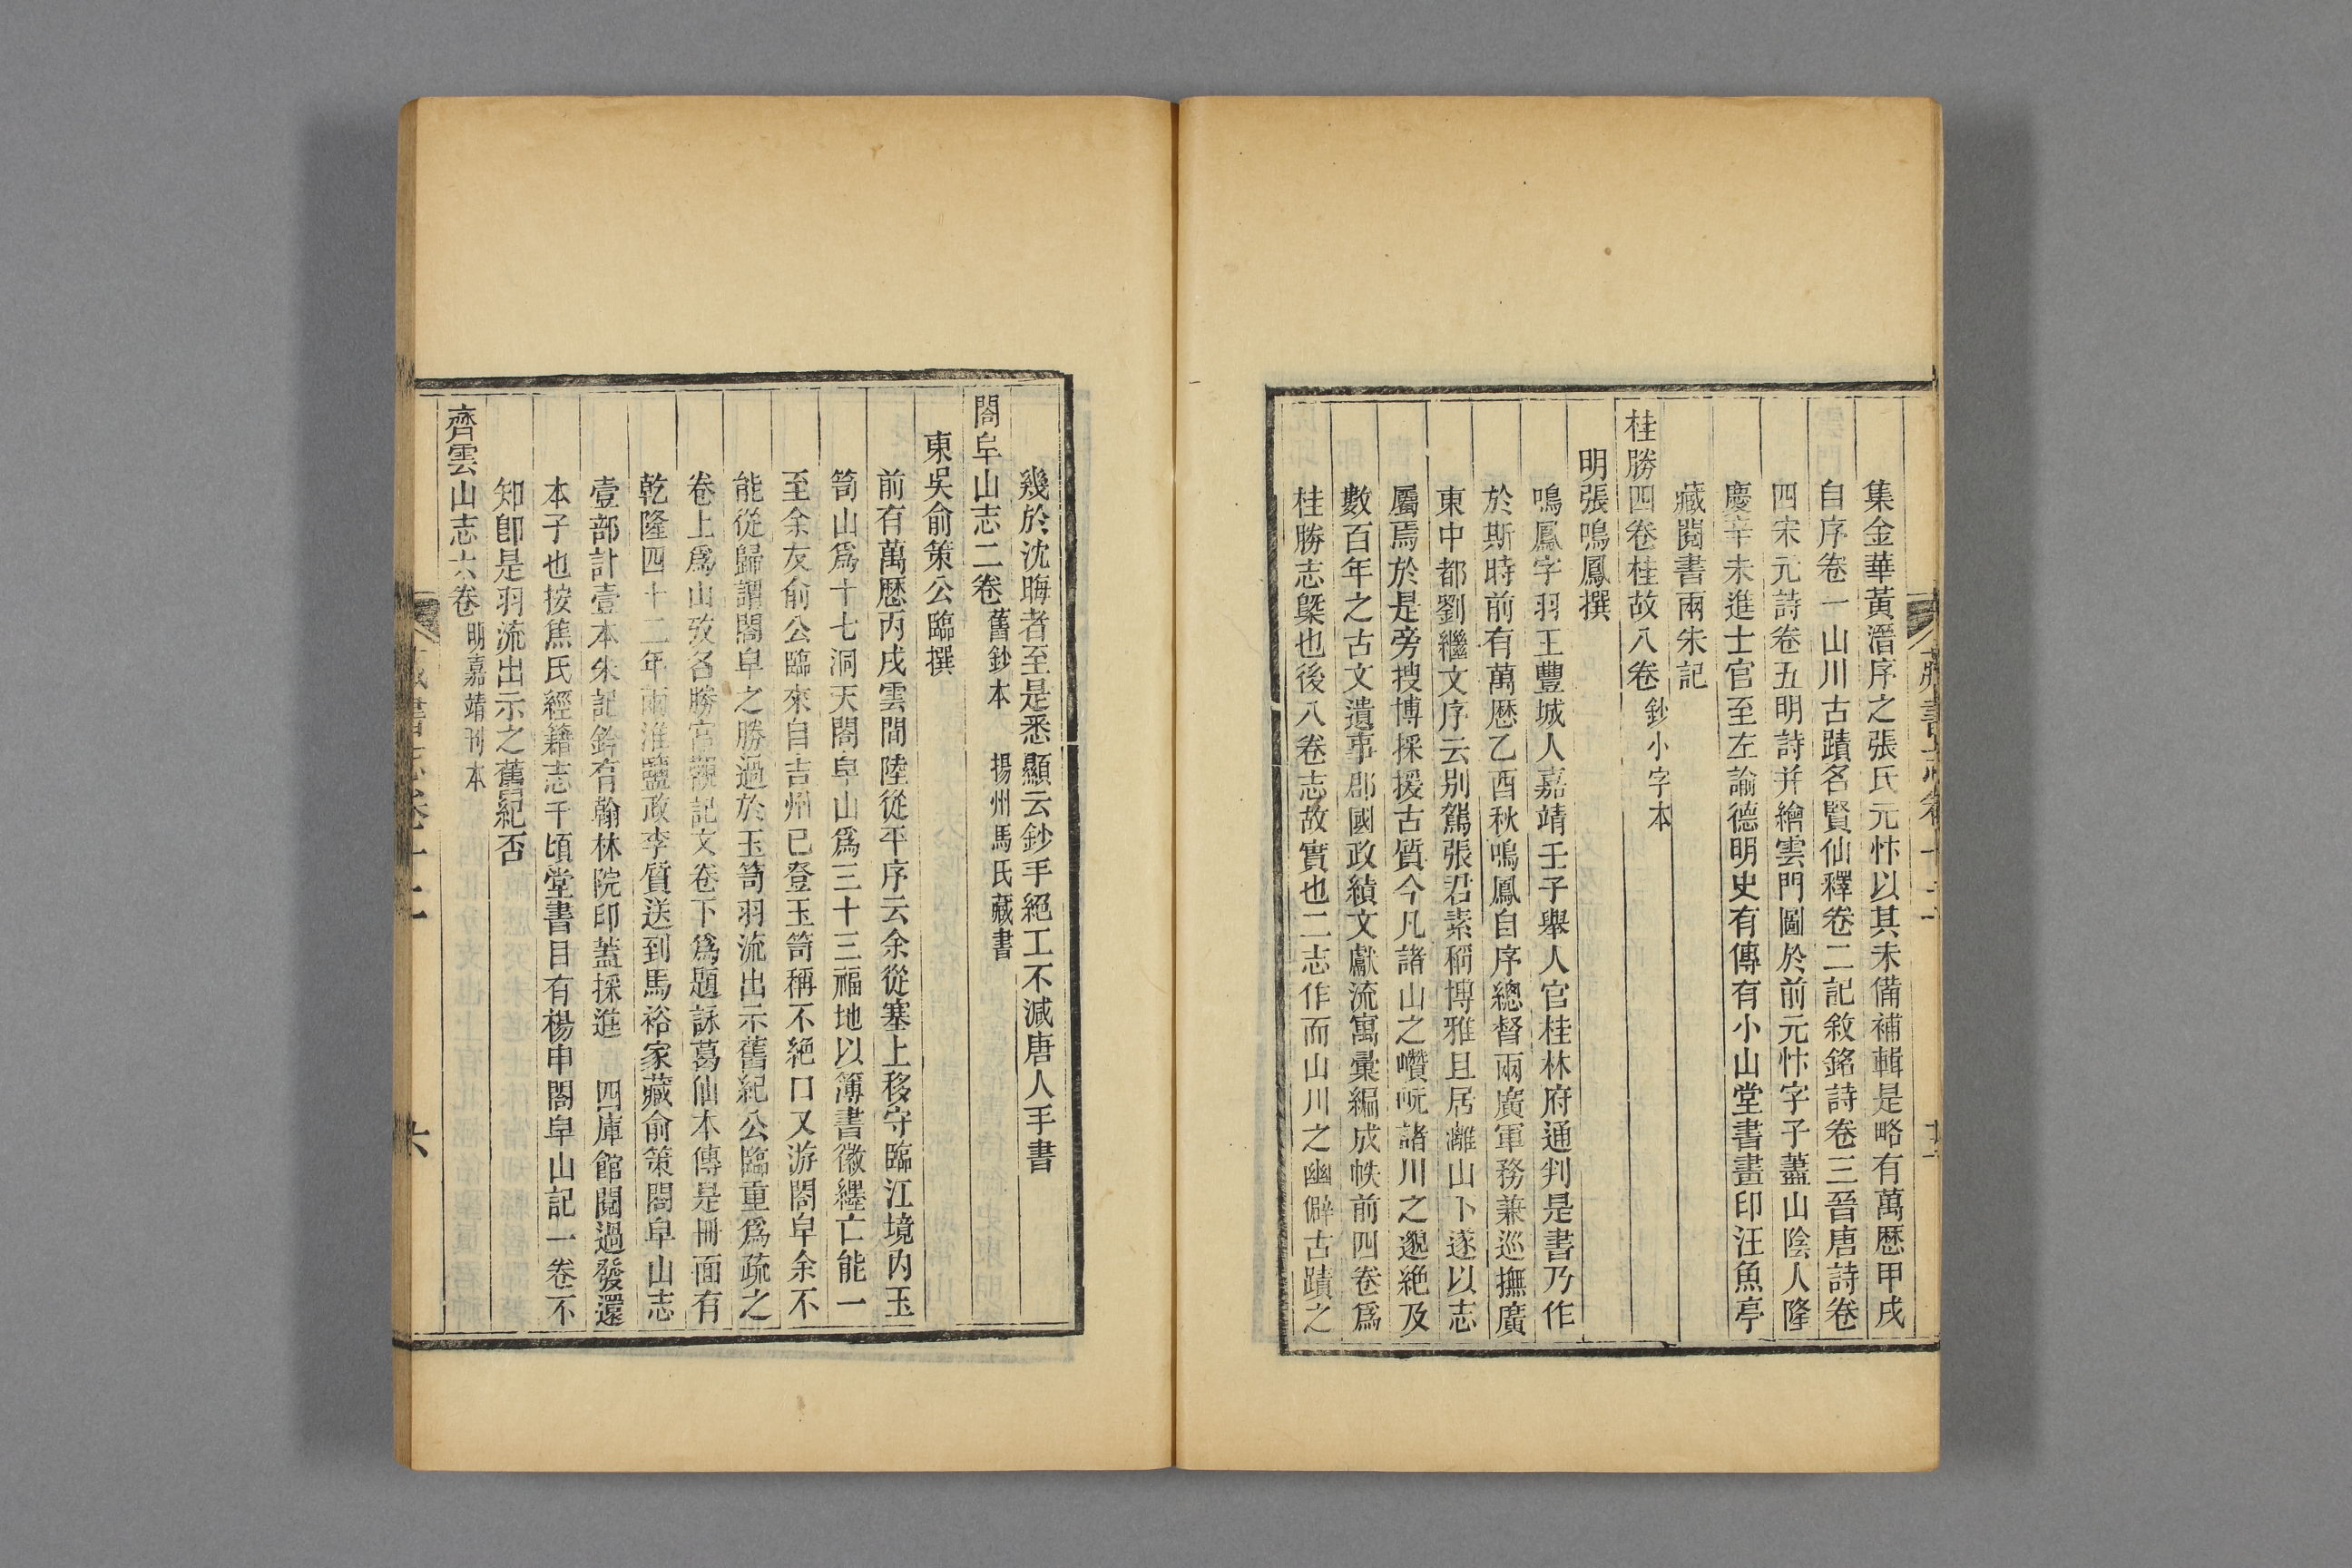 集金華黃溍序之張氏元忭以其未備補輯是略有萬歷甲戌
自序卷一山川古蹟名賢仙釋卷二記敘銘詩卷三晉唐詩卷
四宋元詩卷五明詩并繪雲門圖於前元忭字子藎山陰人隆
慶辛未進士官至左諭德明史有傳有小山堂書畫印汪魚亭
藏閱書兩朱記
桂勝四卷桂故八卷 鈔小字本
明張鳴鳳撰
鳴鳳字羽王豐城人嘉靖壬子舉人官桂林府通判是書乃作
於斯時前有萬歷乙酉秋鳴鳳自序總督兩廣軍務兼巡撫廣
東中都劉繼文序云別駕張君素稱博雅且居灕山卜遂以志
屬焉於是旁搜博採援古質今凡諸山之巑岏諸川之邈絕及
數百年之古文遺事郡國政績文獻流寓彙編成帙前四卷爲
桂勝志槩也後八卷志故實也二志作而山川之幽僻古蹟之
幾於沈晦者至是悉顯云鈔手絕工不減唐人手書
閤皁山志二卷 舊鈔本 揚州馬氏藏書
東吳俞策公臨撰
前有萬歷丙戌雲間陸從平序云余從塞上移守臨江境內玉
笥山爲十七洞天閤皁山爲三十三福地以簿書徽纆亡能一
至余友俞公臨來自吉州已登玉笥稱不絕口又游閤皁余不
能從歸謂閤皁之勝過於玉笥羽流出示舊紀公臨重爲疏之
卷上爲山攷名勝宮觀記文卷下爲題詠葛仙本傳是冊面有
乾隆四十二年兩淮鹽政李質送到馬裕家藏俞策閤皁山志
壹部計壹本朱記鈐有翰林院印蓋採進 四庫館閱過發還
本子也按焦氏經籍志千頃堂書目有楊申閤皁山記一卷不
知卽是羽流出示之舊紀否
齊雲山志六卷 明嘉靖刊本
六